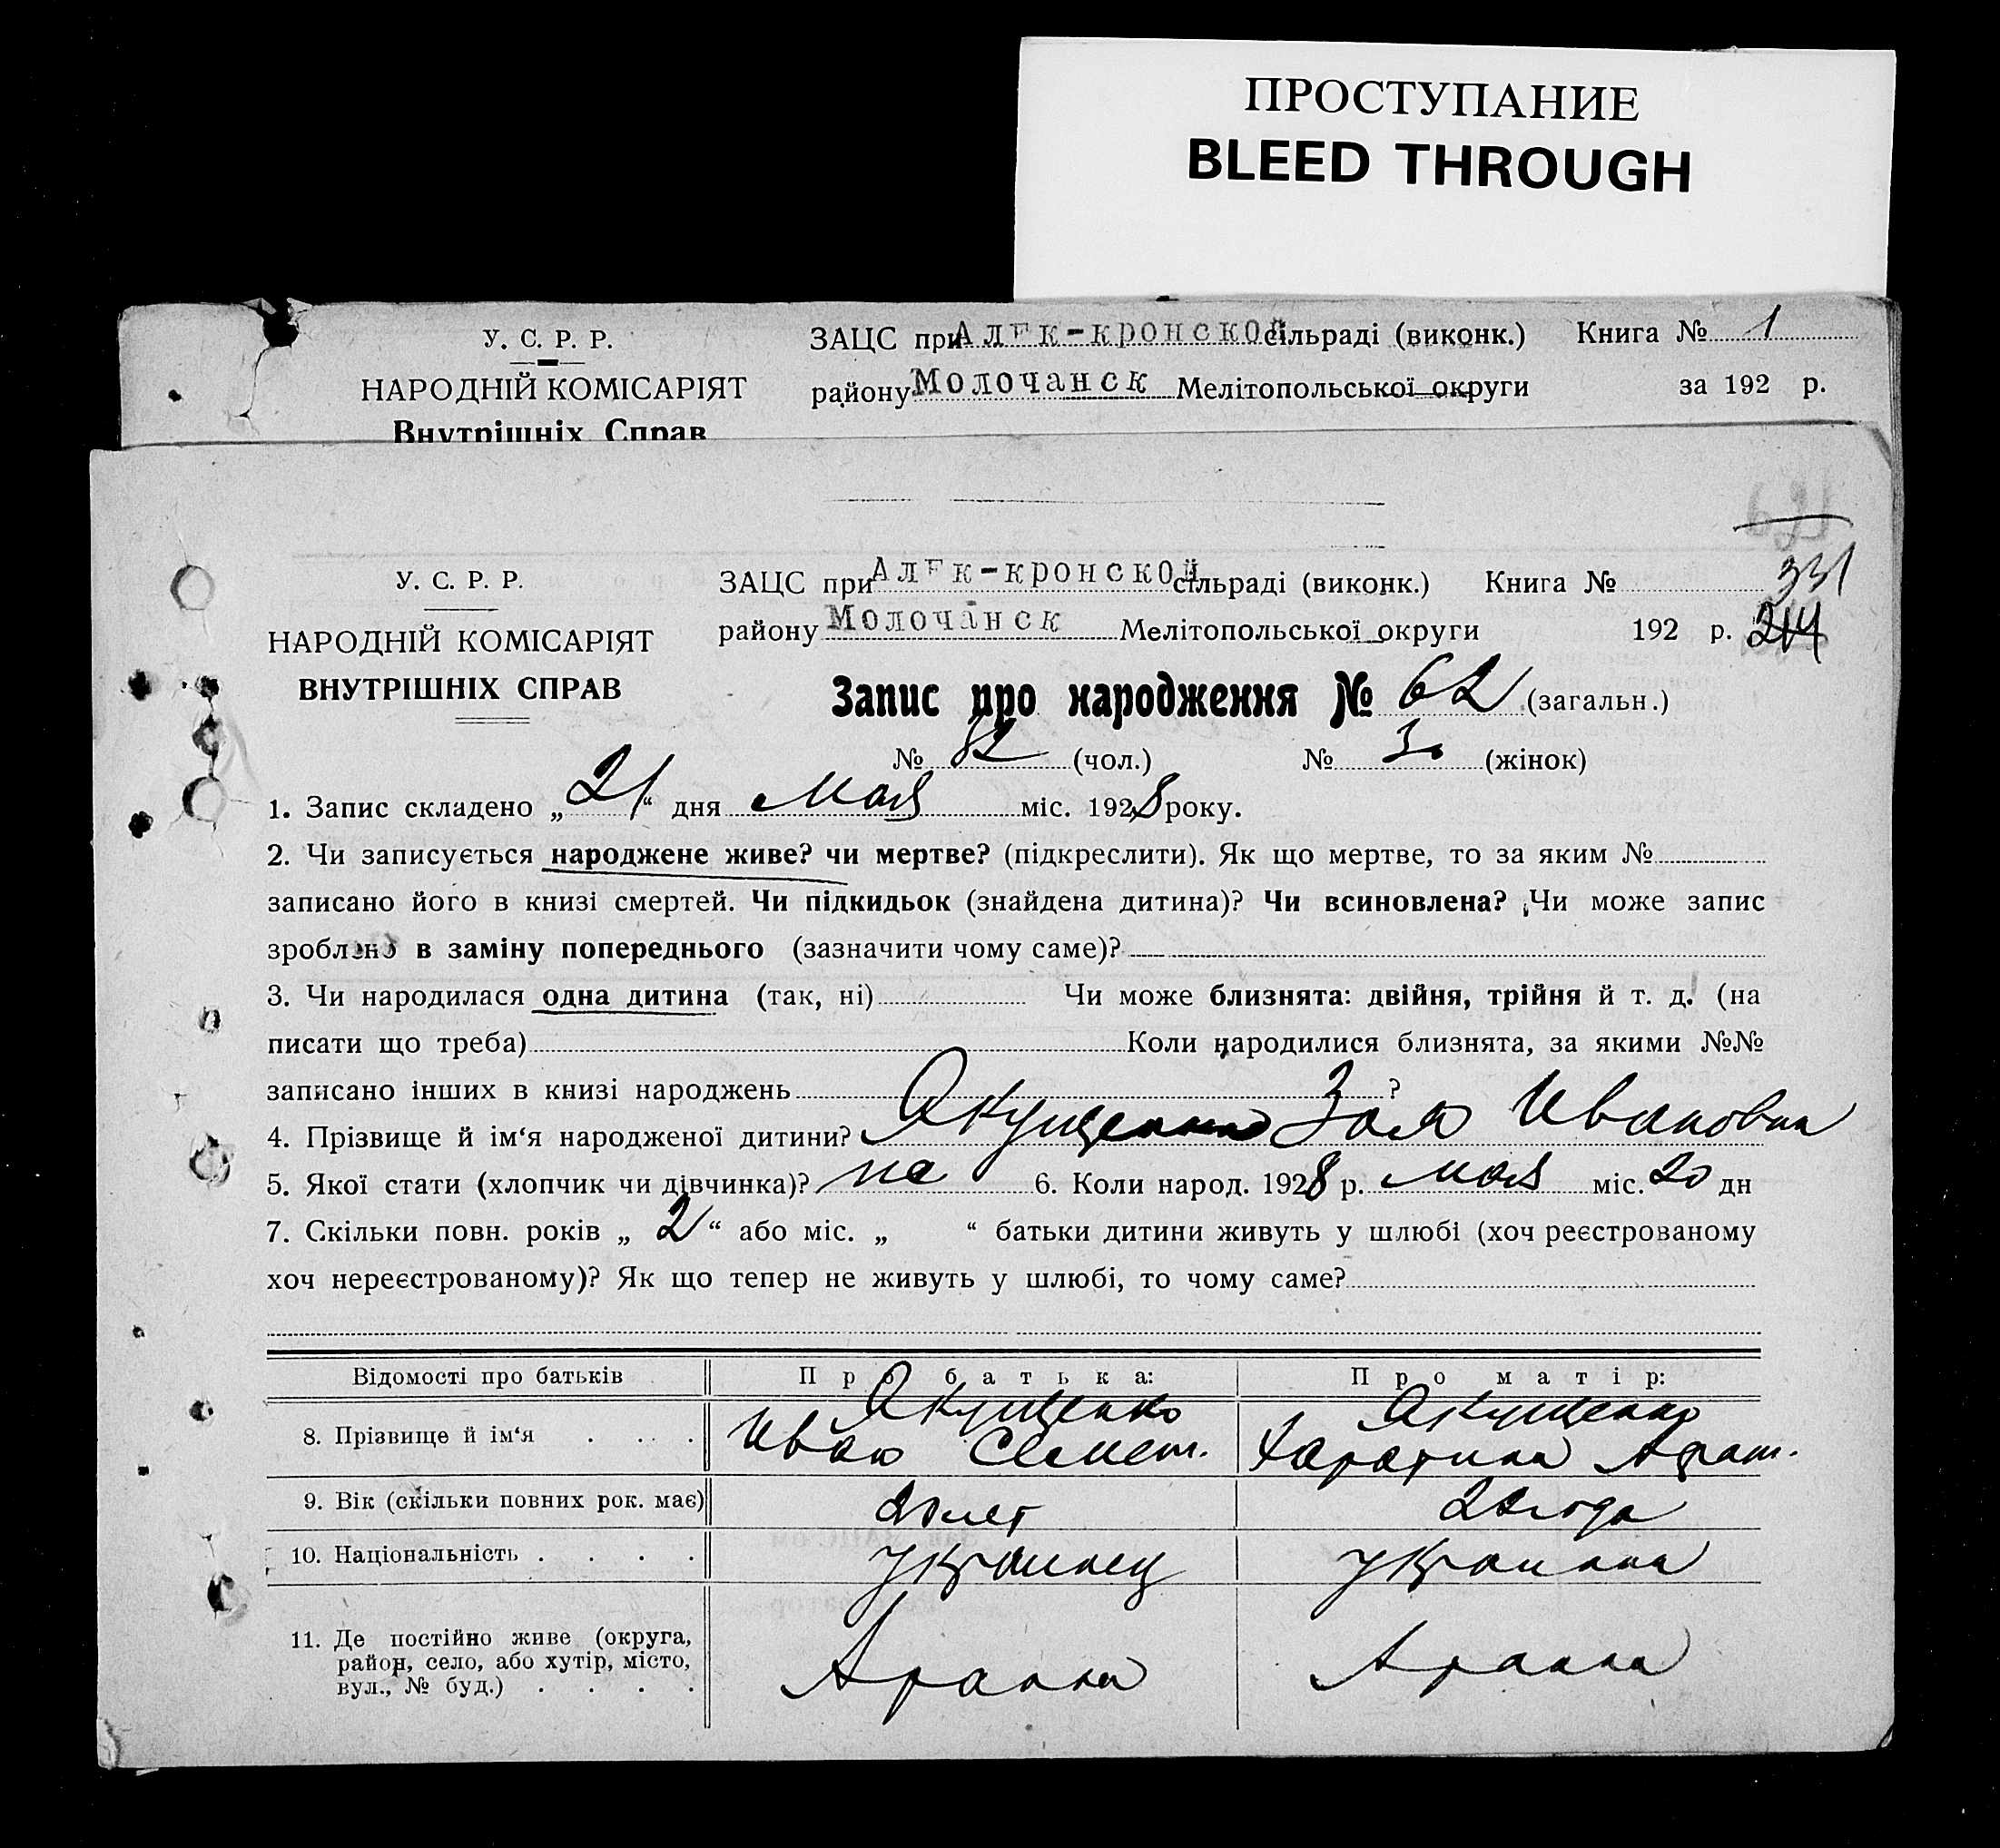 ПРОСТУПАНИЕ
BLEED THROUGH
У. С. Р. Р.
НАРОДНІЙ КОМІСАРІЯТ
Внутрішніх Справ
ЗАЦС при Алек-кронской сільраді (виконк.) Книга № 1
району Молочанск Мелітопольської округи за 192 р.
У. С. Р. Р.
НАРОДНІЙ КОМІСАРІЯТ
ВНУТРІШНІХ СПРАВ
ЗАЦС при Алек-кронской сільраді (виконк.) Книга № 331
району Молочанск Мелітопольської округи 192 р. 214
Запис про народження № 62 (загальн.)
№ 82 (чол.) № 30 (жінок)
1. Запис складено „21“ дня Мая міс. 1928 року.
2. Чи записується народжене живе? чи мертве? (підкреслити). Як що мертве, то за яким №
записано його в книзі смертей. Чи підкидьок (знайдена дитина)? Чи всиновлена? Чи може запис
зроблено в заміну попереднього (зазначити чому саме)?
3. Чи народилася одна дитина (так, ні) Чи може близнята: двійня, трійня й т. д. (на
писати що треба) Коли народилися близнята, за якими №№
записано інших в книзі народжень ?
4. Прізвище й ім‘я народженої дитини? Якущенко Зоя Ивановна
5. Якої стати (хлопчик чи дівчинка)? 6. Коли народ. 1928 р. мая міс. 20 дн
7. Скільки повн. років „2“ або міс. „ “ батьки дитини живуть у шлюбі (хоч реєстрованому
хоч нереєстрованому)? Як що тепер не живуть у шлюбі, то чому саме?
Відомості про батьків Про батька: Про матір:
8. Прізвище й ім‘я . . . Якущенко Иван Семен. Якущенко
9. Вік (скільки повних рок. має) 20 лет 22 года
10. Національність . . . . Украинец Украинка
11. Де постійно живе (округа,
район, село, або хутір, місто,
вул., № буд.) . . . .